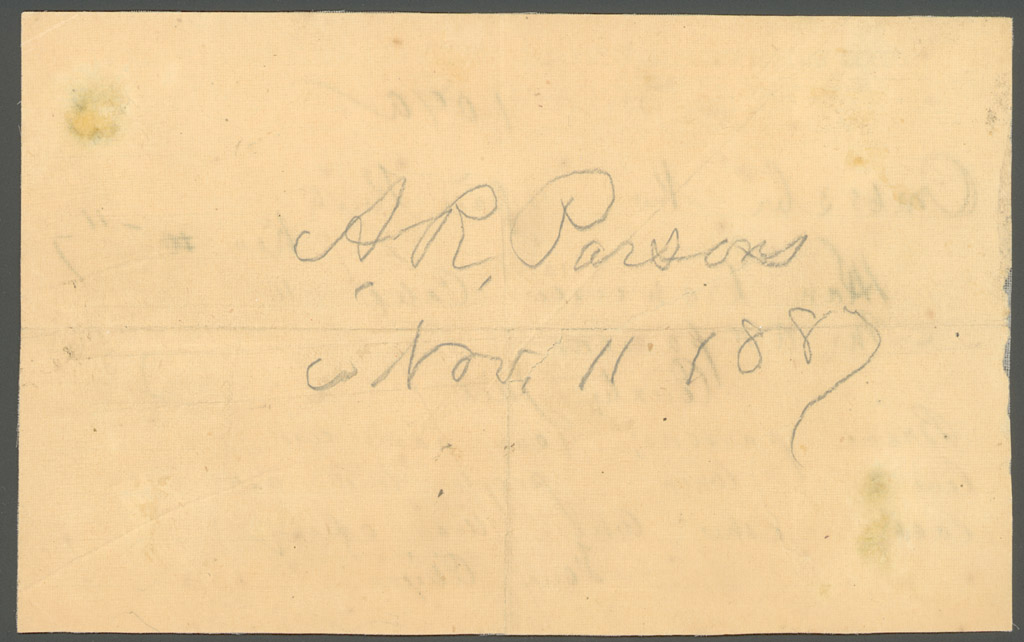 A. R. Parsons
Nov. 11 1887